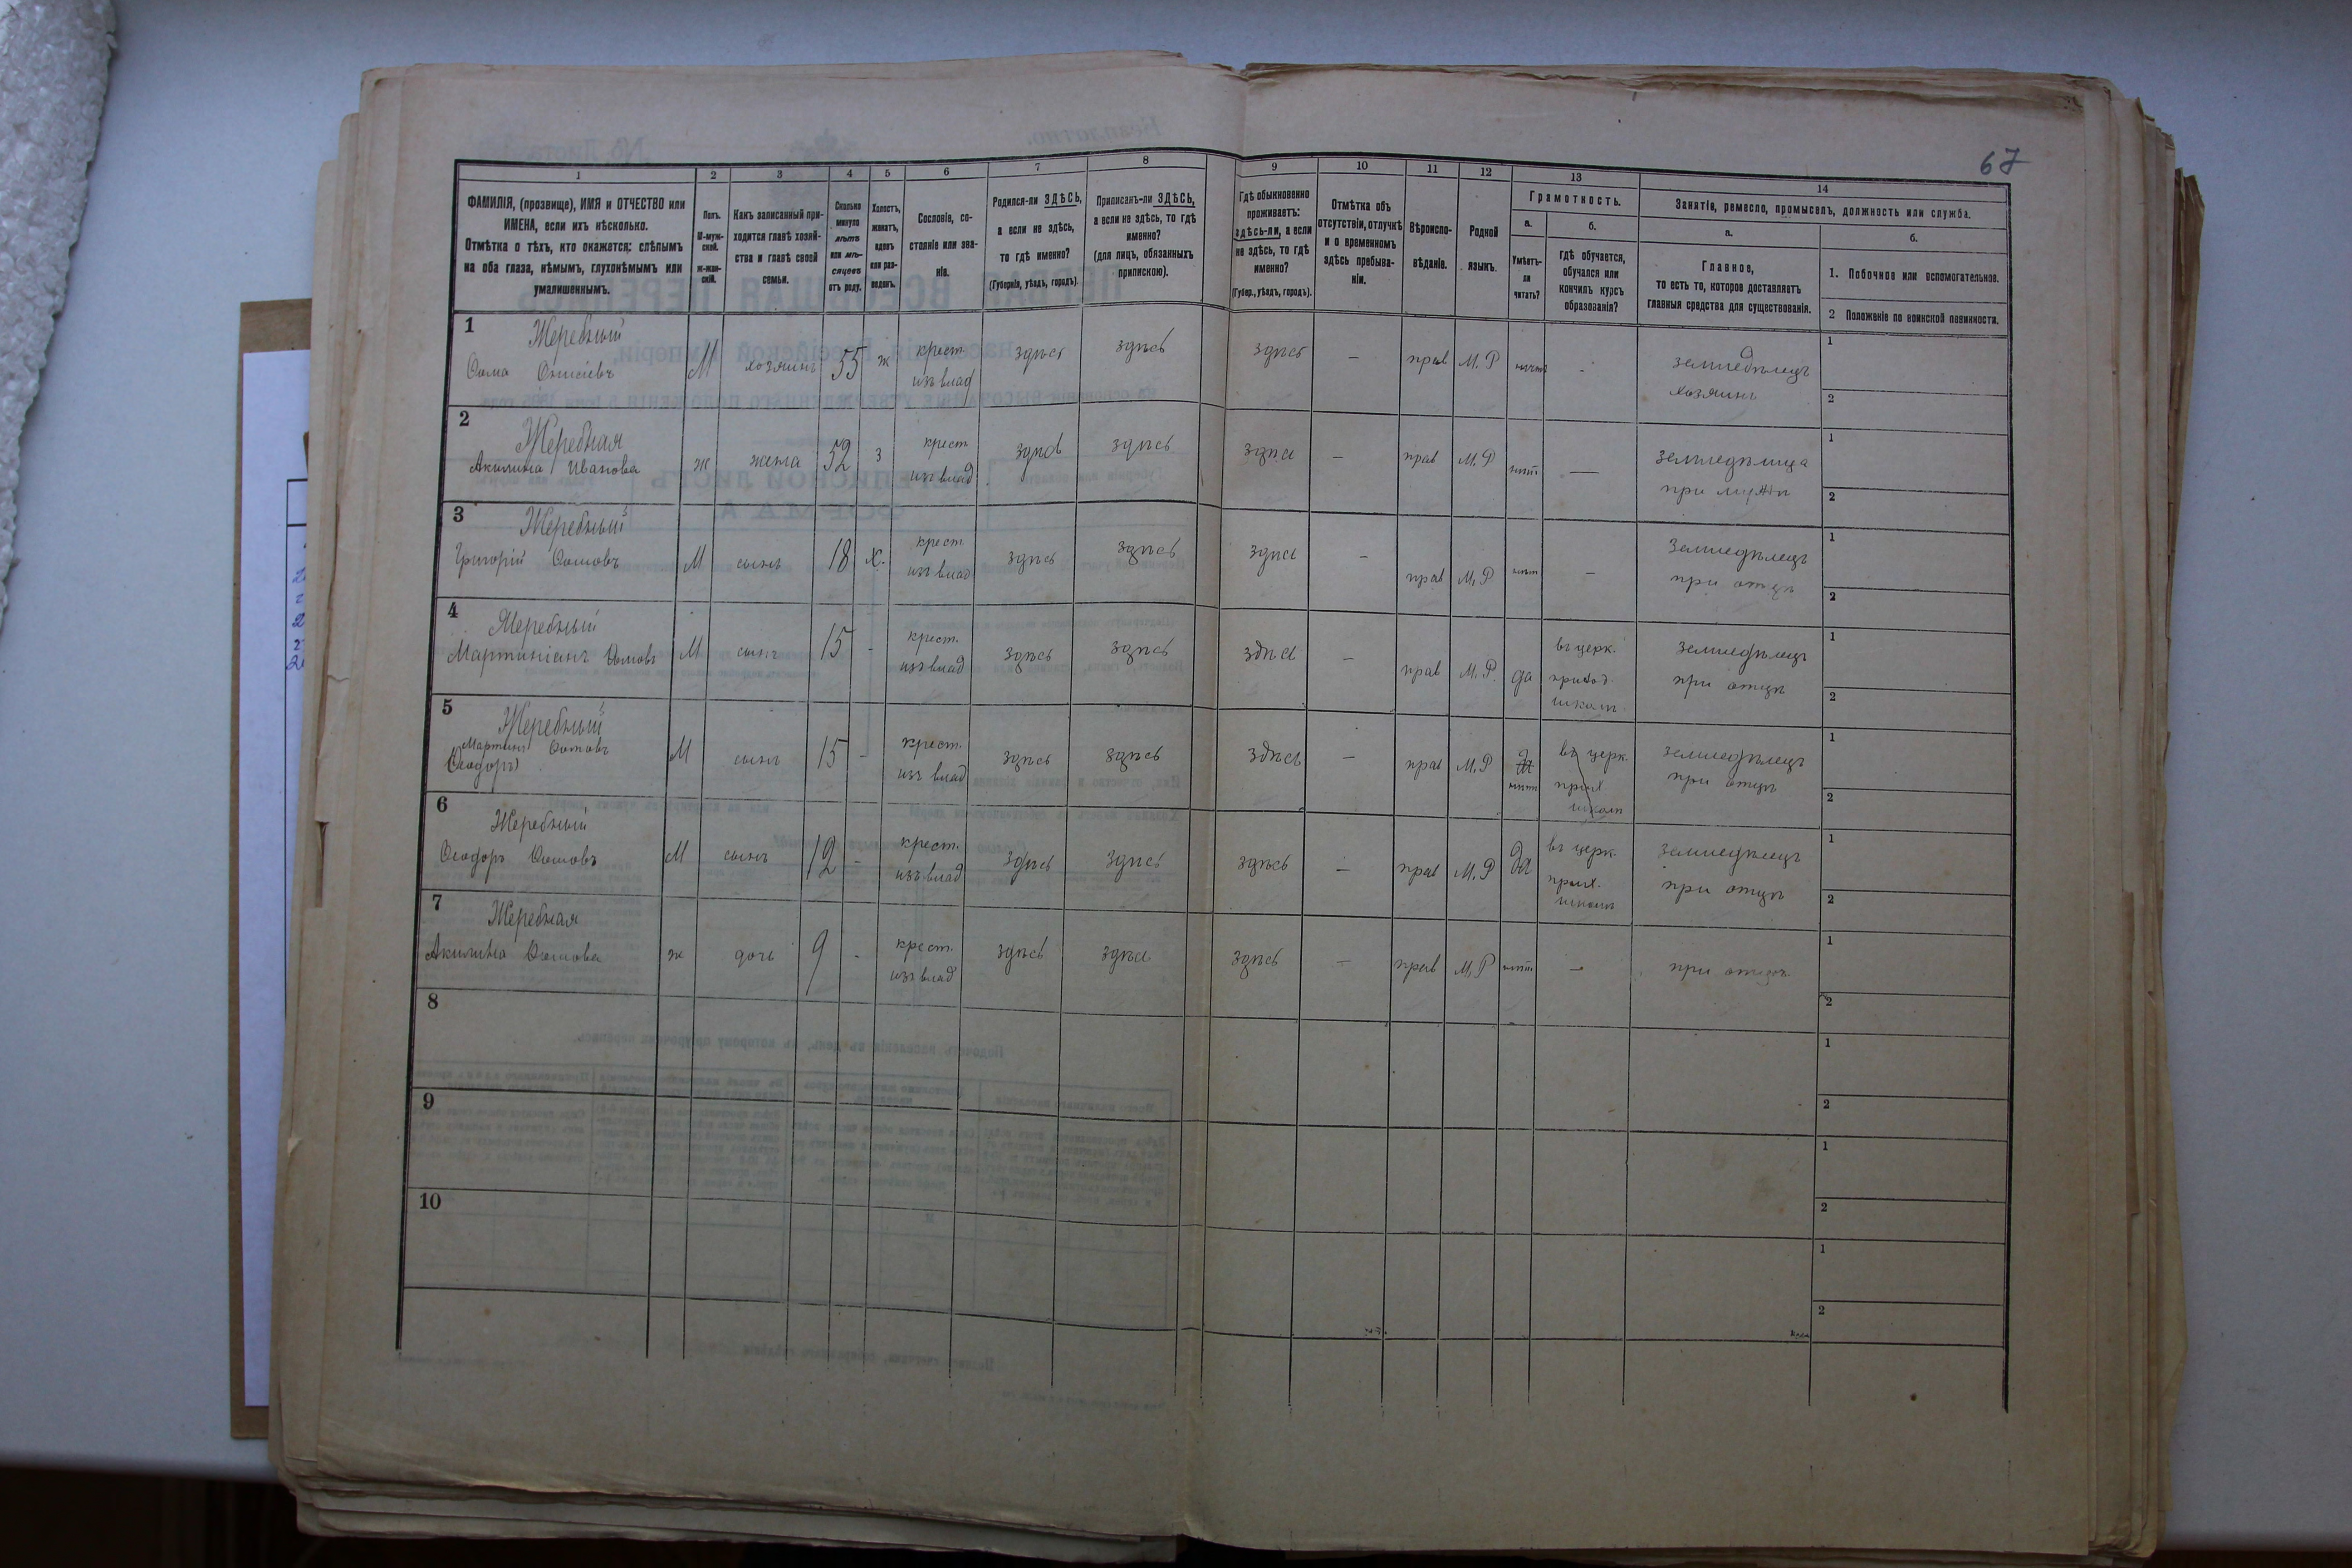 67
1 2 3 4 5 6 7 8 9 10 11 12 13 14
ФАМИЛІЯ, (прозвище), ИМЯ и ОТЧЕСТВО или
ИМЕНА, если ихъ нѣсколько.
Отмѣтка о тѣхъ, кто окажется: слѣпымъ
на оба глаза, нѣмымъ, глухонѣмымъ или
умалишеннымъ.
Полъ.
М-муж-
ской.
ж-жен-
скій.
Какъ записанный при-
ходится главѣ хозяй-
ства и главѣ своей
семьи.
Сколько
минуло
лѣтъ
или мѣ-
сяцевъ
отъ роду.
Холостъ,
женатъ,
вдовъ
или раз-
веденъ.
Сословіе, со-
стояніе или зва-
ніе.
Родился-ли ЗДѢСЬ,
а если не здѣсь,
то гдѣ именно?
(Губернія, уѣздъ, городъ).
Приписанъ-ли ЗДѢСЬ,
а если не здѣсь, то гдѣ
именно?
(для лицъ, обязанныхъ
припискою).
Гдѣ обыкновенно
проживаетъ:
здѣсь-ли, а если
не здѣсь, то гдѣ
именно?
(Губер., уѣздъ, городъ).
Отмѣтка объ
отсутствіи, отлучкѣ
и о временномъ
здѣсь пребыва-
ніи.
Вѣроиспо-
вѣданіе.
Родной
языкъ.
Грамотность.
а.
Умѣетъ-
ли
читать?
б.
гдѣ обучается,
обучался или
кончилъ курсъ
образованія?
Занятіе, ремесло, промыселъ, должность или служба.
а.
Главное,
то есть то, которое доставляетъ
главныя средства для существованія.
б.
1. Побочное или вспомогательное.
2 Положеніе по воинской повинности.
1 Жеребный
Ѳома Онисіевъ М хозяинъ 55 ж крест. изъ влад здѣсь здѣсь здѣсь — прав М.Р нѣтъ - земледѣлецъ
хозяинъ
1
2
2 Жеребная
Акилина Иванова ж жена 52 з крест изъ влад здѣсь здѣсь здѣсь — прав М.Р нѣтъ — земледѣлица
при мужѣ
1
2
3 Жеребный
Григорій Ѳомовъ М сынъ 18 х. крест изъ влад здѣсь здѣсь здѣсь — прав М.Р нѣтъ — земледѣлецъ
при отцѣ
1
2
4 Жеребный
Мартиніанъ Ѳомовъ М сынъ 15 - крест. изъ влад здѣсь здѣсь здѣсь — прав М.Р. да въ церк.
приход.
школѣ
земледѣлецъ
при отцѣ
1
2
5 Жеребный
Мартинъ Ѳомовъ
Ѳеодоръ М сынъ 15 - крест. изъ влад здѣсь здѣсь здѣсь — прав М.Р да
нѣтъ
въ церк.
прих
школѣ
земледѣлецъ
при отцѣ
1
2
6 Жеребный
Ѳеодоръ Ѳомовъ М сынъ 12 - крест. изъ влад здѣсь здѣсь здѣсь — прав М.Р да въ церк.
прих.
школѣ
земледѣлецъ
при отцѣ
1
2
7 Жеребная
Акилина Ѳомова ж дочь 9 - крест. изъ влад здѣсь здѣсь здѣсь — прав М.Р нѣтъ — при отцѣ
1
2
8
1
2
9
1
2
10
1
2